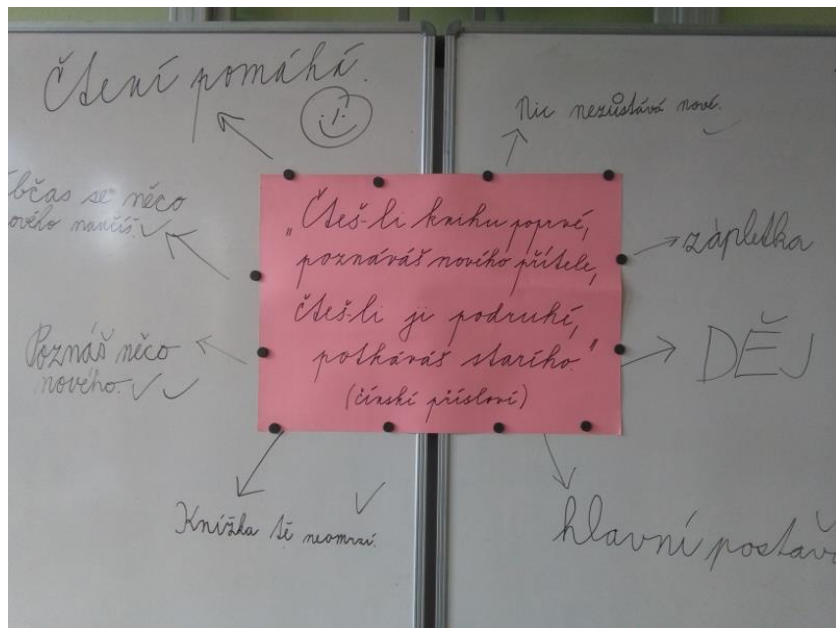 Čtení pomáhá.
Nic nezůstává nové.
bčas se něco
ového naučíš.
„Čteš-li knihu poprvé,
poznáváš nového přítele,
čteš-li ji podruhé,
potkáváš starého."
(čínské přísloví)
zápletka
Poznáš něco
nového.
DĚJ
Knížka tě neomrzí.
hlavní postava